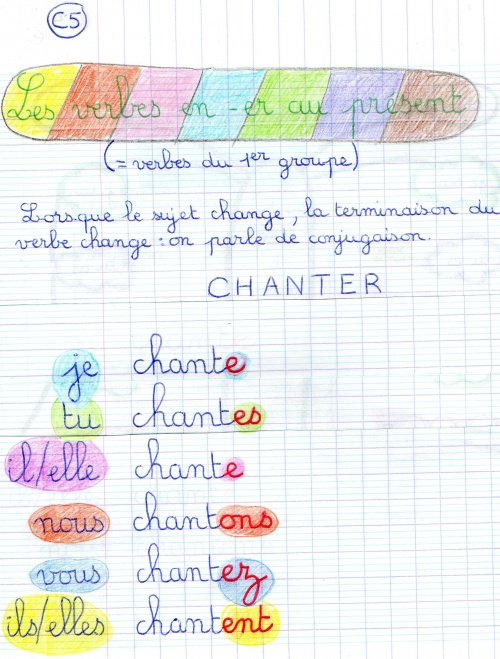 C5
Les verbes en -er au présent
(= verbes du 1er groupe)
Lorsque le sujet change, la terminaison du
verbe change : on parle de conjugaison.
CHANTER
je chante
tu chantes
il/elle chante
nous chantons
vous chantez
ils/elles chantent